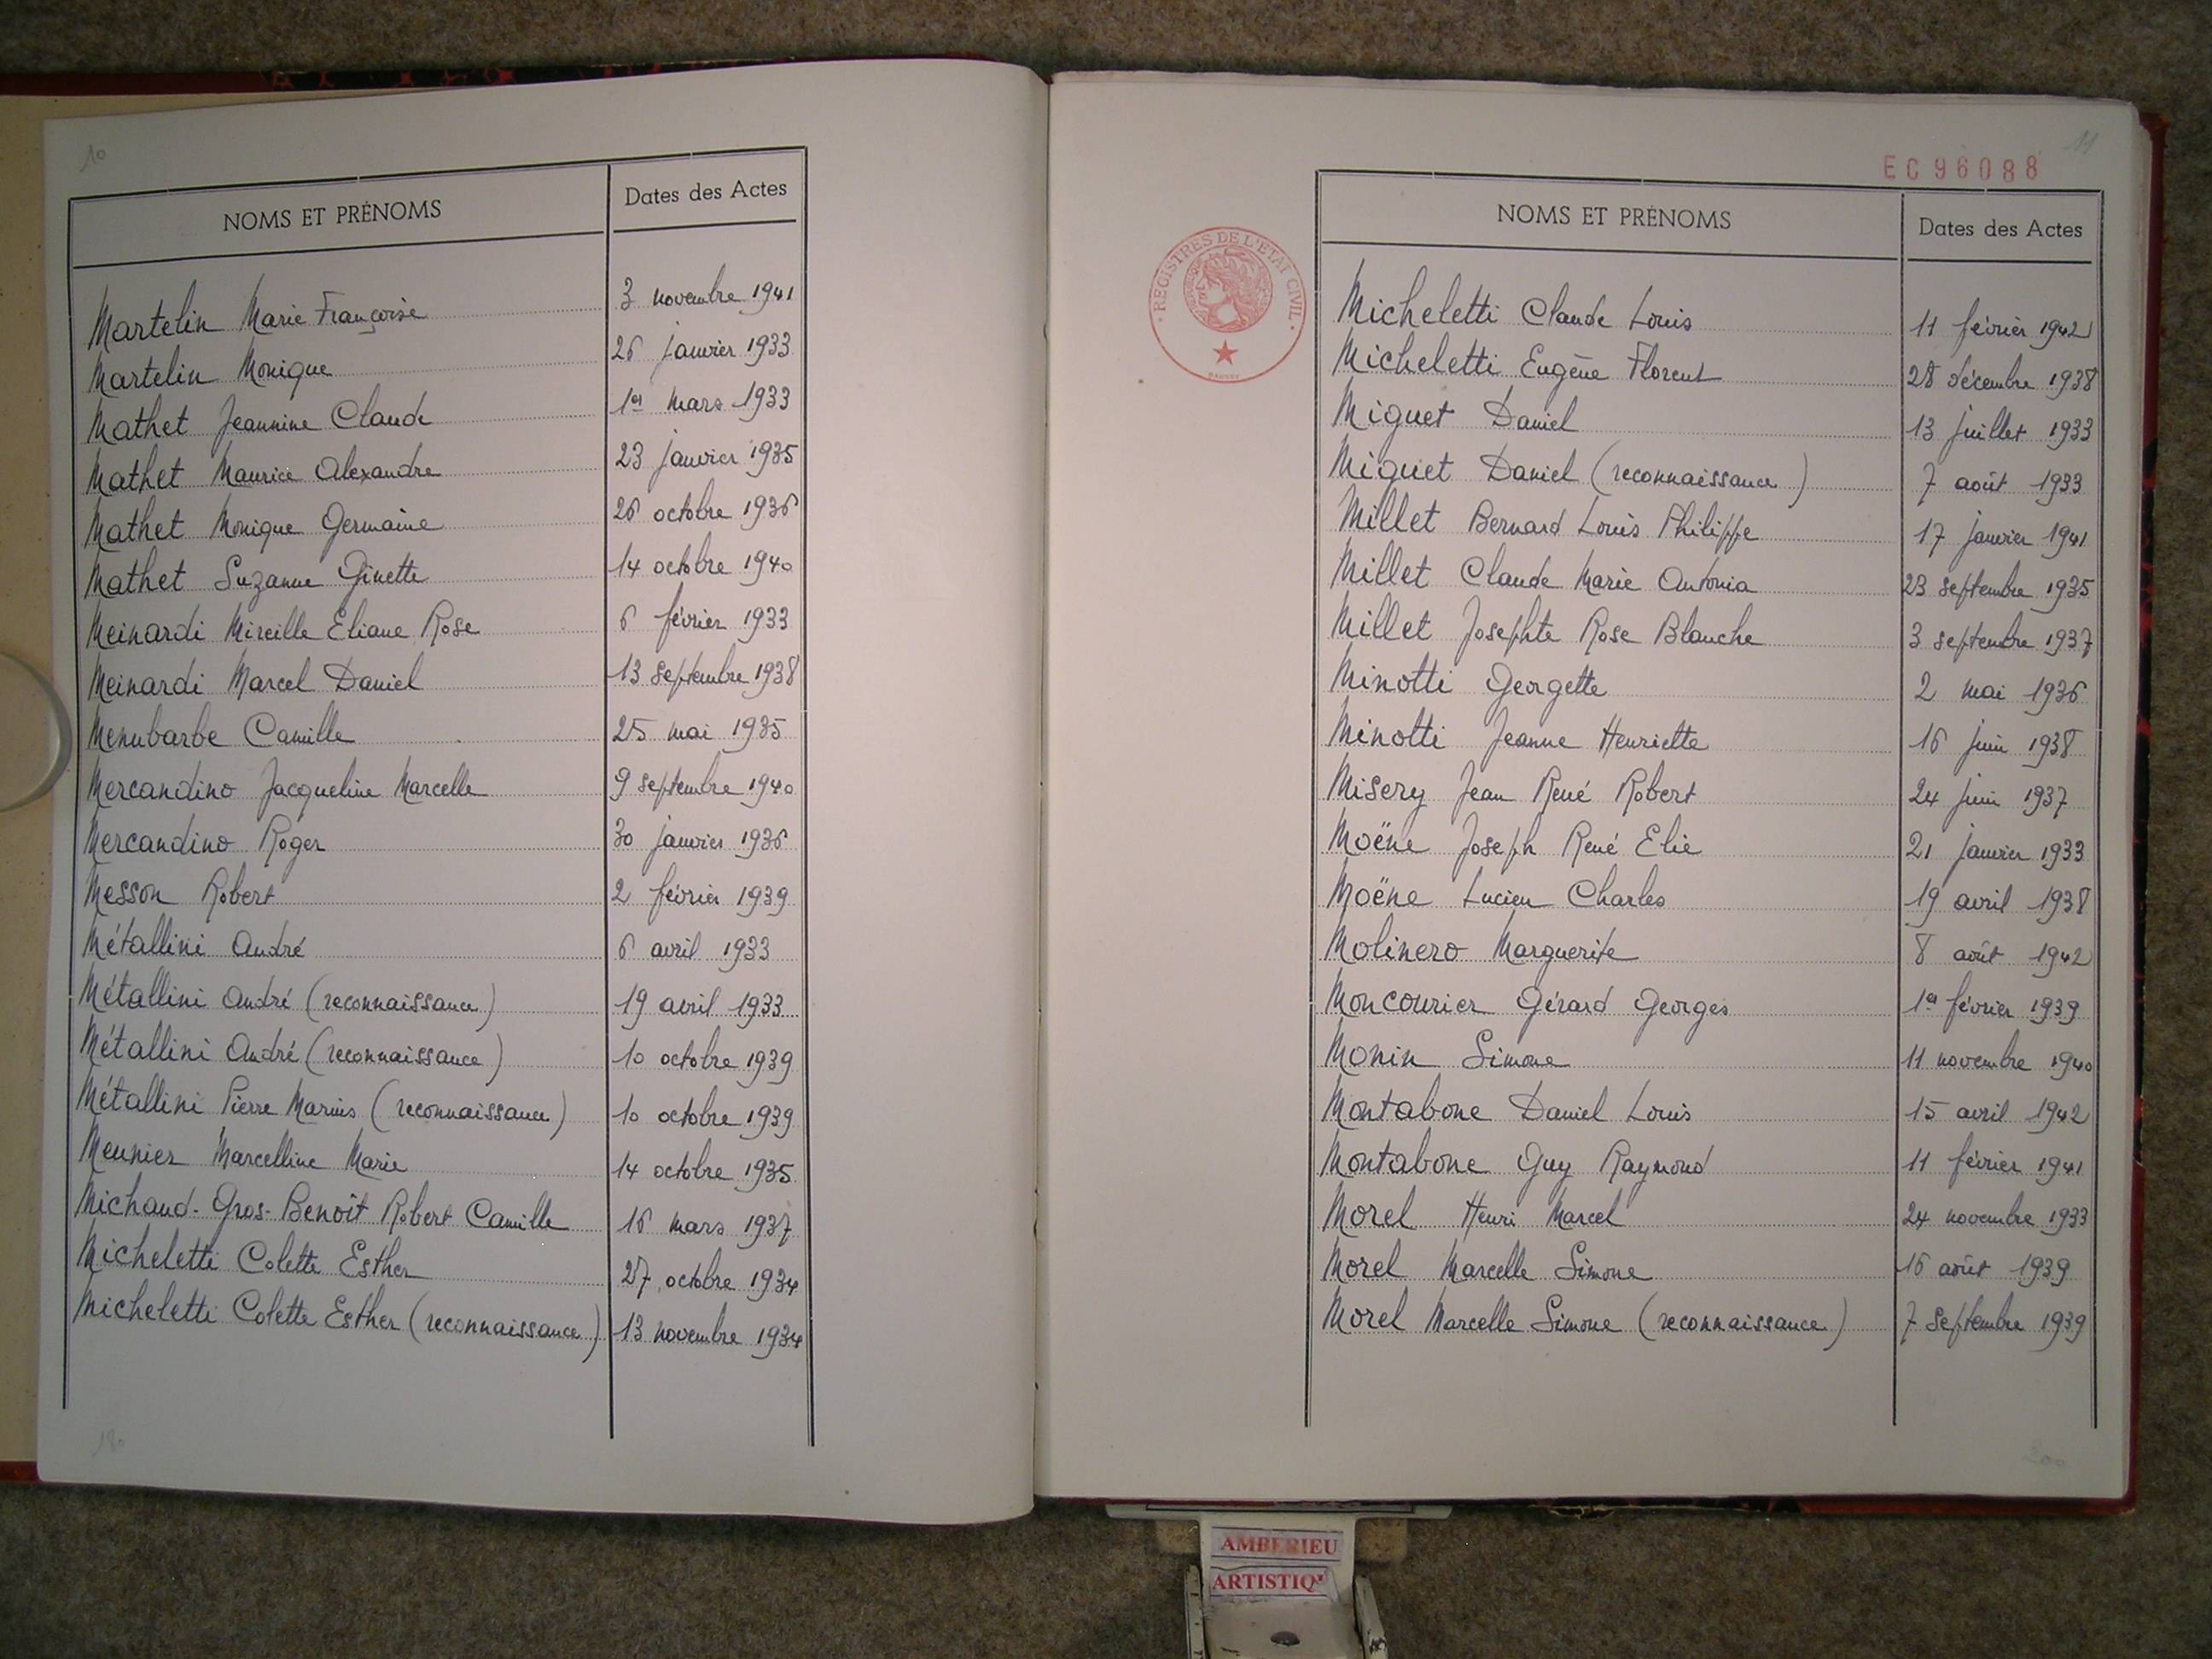 10
NOMS ET PRÉNOMS Dates des Actes
Martelin Marie Françoise 3 novembre 1941
Martelin Monique 26 janvier 1933
Mathet Jeannine Claude 1er mars 1933
Mathet Maurice Alexandre 23 janvier 1935
Mathet Monique Germaine 26 octobre 1936
Mathet Suzanne Ginette 14 octobre 1940
Meinardi Mireille Eliane Rose 6 février 1933
Meinardi Marcel Daniel 13 septembre 1938
Menubarbe Camille 25 mai 1935
Mercandino Jacqueline Marcelle 9 septembre 1940
Mercandino Roger 30 janvier 1936
Messon Robert 2 février 1939
Métallini André 6 avril 1933
Métallini André (reconnaissance) 19 avril 1933
Métallini André (reconnaissance) 10 octobre 1939
Métallini Pierre Marius (reconnaissance) 10 octobre 1939
Meunier Marcelline Marie 14 octobre 1935
Michaud-Gros-Benoît Robert Camille 16 mars 1937
Micheletti Colette Esther 27 octobre 1934
Micheletti Colette Esther (reconnaissance) 13 novembre 1934
180
11
EC96088
REGISTRES DE L'ETAT CIVIL
NOMS ET PRÉNOMS Dates des Actes
Micheletti Claude Louis 11 février 1942
Micheletti Eugène Florent 28 décembre 1938
Miguet Daniel 13 juillet 1933
Miguet Daniel (reconnaissance) 7 août 1933
Millet Bernard Louis Philippe 17 janvier 1941
Millet Claude Marie Antonia 23 septembre 1935
Millet Josephte Rose Blanche 3 septembre 1937
Minotti Georgette 2 mai 1936
Minotti Jeanne Henriette 16 juin 1938
Misery Jean René Robert 24 juin 1937
Moëne Joseph René Elie 21 janvier 1933
Moëne Lucien Charles 19 avril 1938
Molinero Marguerite 8 août 1942
Moncourier Gérard Georges 1er février 1939
Monin Simone 11 novembre 1940
Montabone Daniel Louis 15 avril 1942
Montabone Guy Raymond 11 février 1941
Morel Henri Marcel 24 novembre 1933
Morel Marcelle Simone 16 août 1939
Morel Marcelle Simone (reconnaissance) 7 septembre 1939
200
AMBERIEU
ARTISTIQ